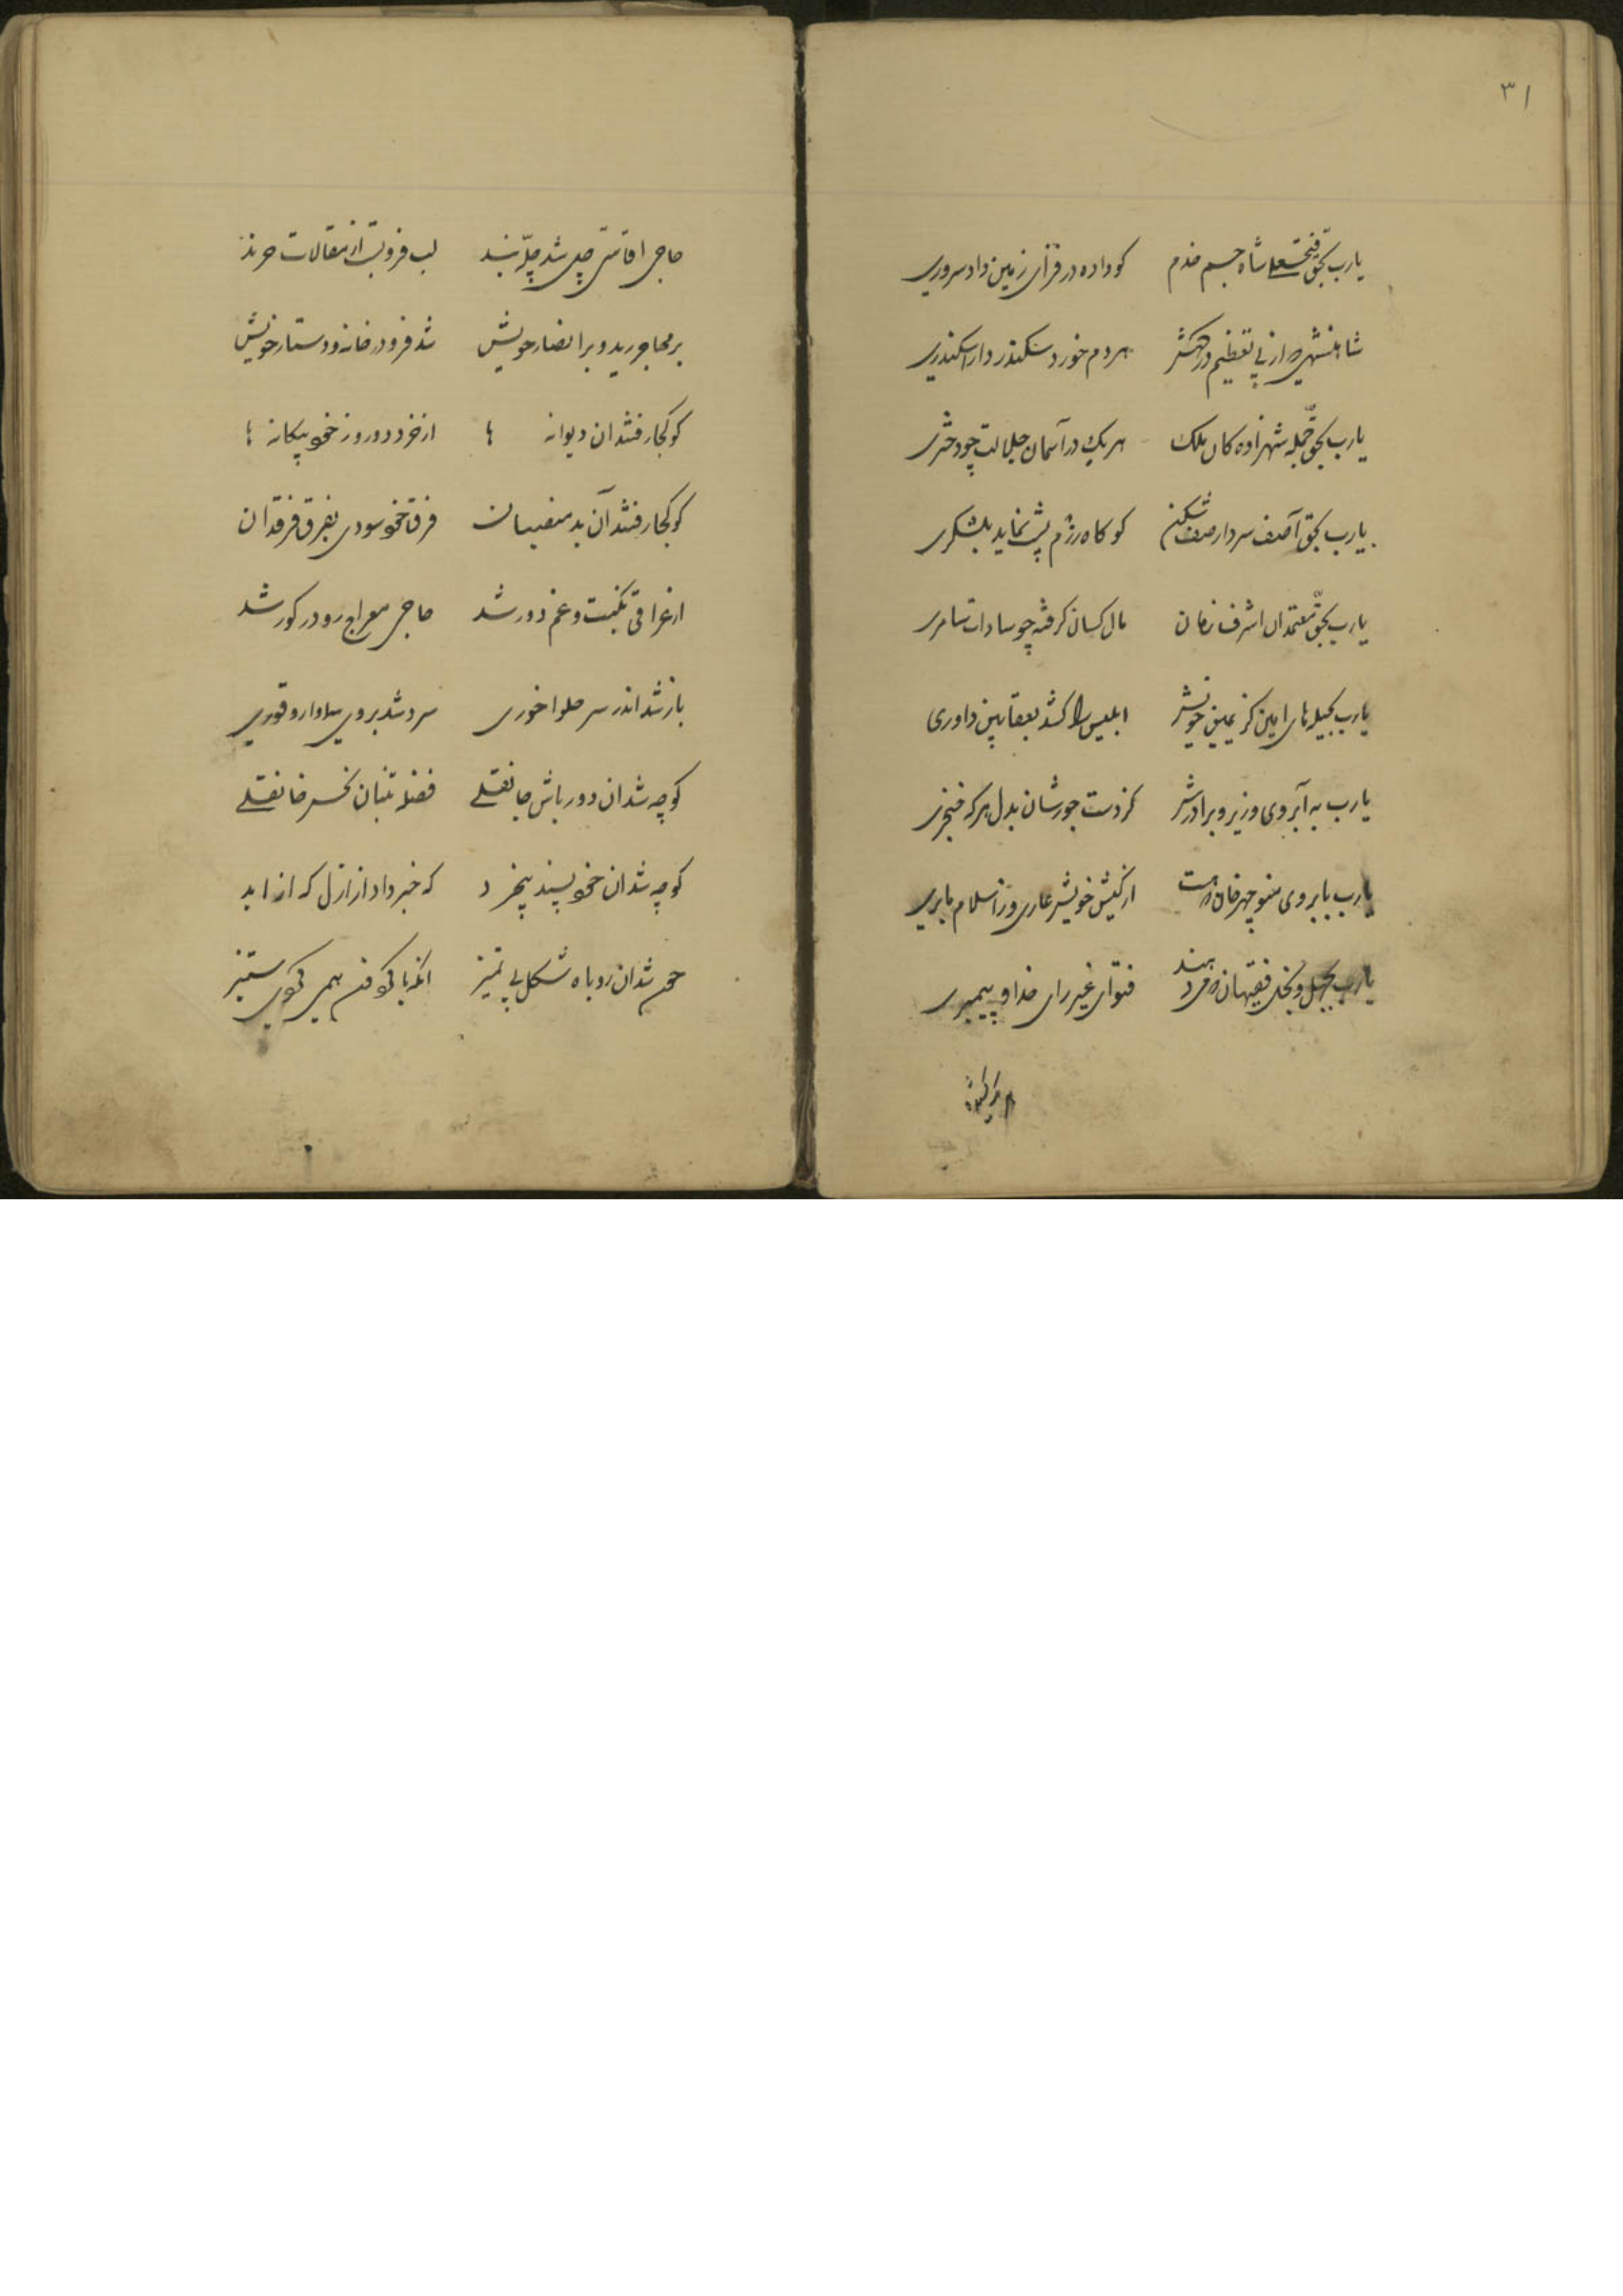 ۳۱
یارب بحق فتحعلی شاه جم خدم کو داده در قرای زمین داد سروری
شاهنشهی که از پی تعظیم درگهش هردم خورد سکندر دار اسکندری
یارب بحق جمله شهزاده کان ملک هر یک در آسمان جلالت چو
یارب بحق آصف سردار صف شکن کو کاه رزم پشت نماید بلشکری
یارب بحق معتمدان اشرف زمان مال کسان گرفته چو سادات سامری
یارب بحیله های امین کز یمین خویش ابلیس را کشد بعقابین داوری
یارب به آبروی وزیر و برادرش کز دست جورشان بدل هر که خنجری
یارب بابروی منوچهرخان که هست از کیش خویش عاری وز اسلام هم بری
یارب بجهل و بخل فقیهان که میدهند فتوای غیر رای خدا و پیمبری
حاجی اقاسی چل شد چله بند لب فروبست از مقالات چرند
بر مهاجر رید و بر انصار خویش شد فرو در خانه و دستار خویش
کو کجا رفتند ان دیوانه ها از خرد دور وز خود بیکانه ها
کو کجا رفتند آن بد منصبان فرق خود سودی بفرق فرقدان
ارغراقی نکبت و غم دور شد حاجی معراج رو در کور شد
باز شد اندر سر حلوا خوری سرد شد بروی سماوار و قوری
کو چه شد ان دور باش جانقلی فضله تنبان نخس خانقلی
کو چه شد ان خود پسند بیخرد که خبر داد از ازل که از ابد
هم شد ان روباه شکل بی تمیز انکه با کوفتم همی کوی ستیز